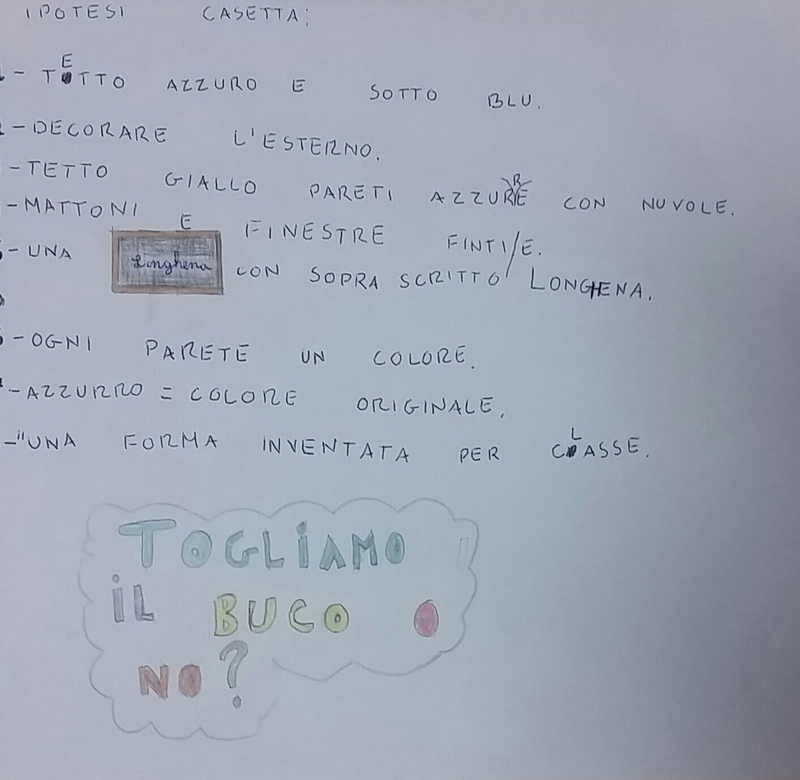 IPOTESI CASETTA:
- TETTO AZZURO E SOTTO BLU.
- DECORARE L'ESTERNO.
- TETTO GIALLO PARETI AZZURRE CON NUVOLE.
- MATTONI E FINESTRE FINTI/E.
- UNA Longhena CON SOPRA SCRITTO LONGHENA.
- OGNI PARETE UN COLORE.
- AZZURRO = COLORE ORIGINALE.
- "UNA FORMA INVENTATA PER CLASSE.
TOGLIAMO
IL BUCO O
NO?